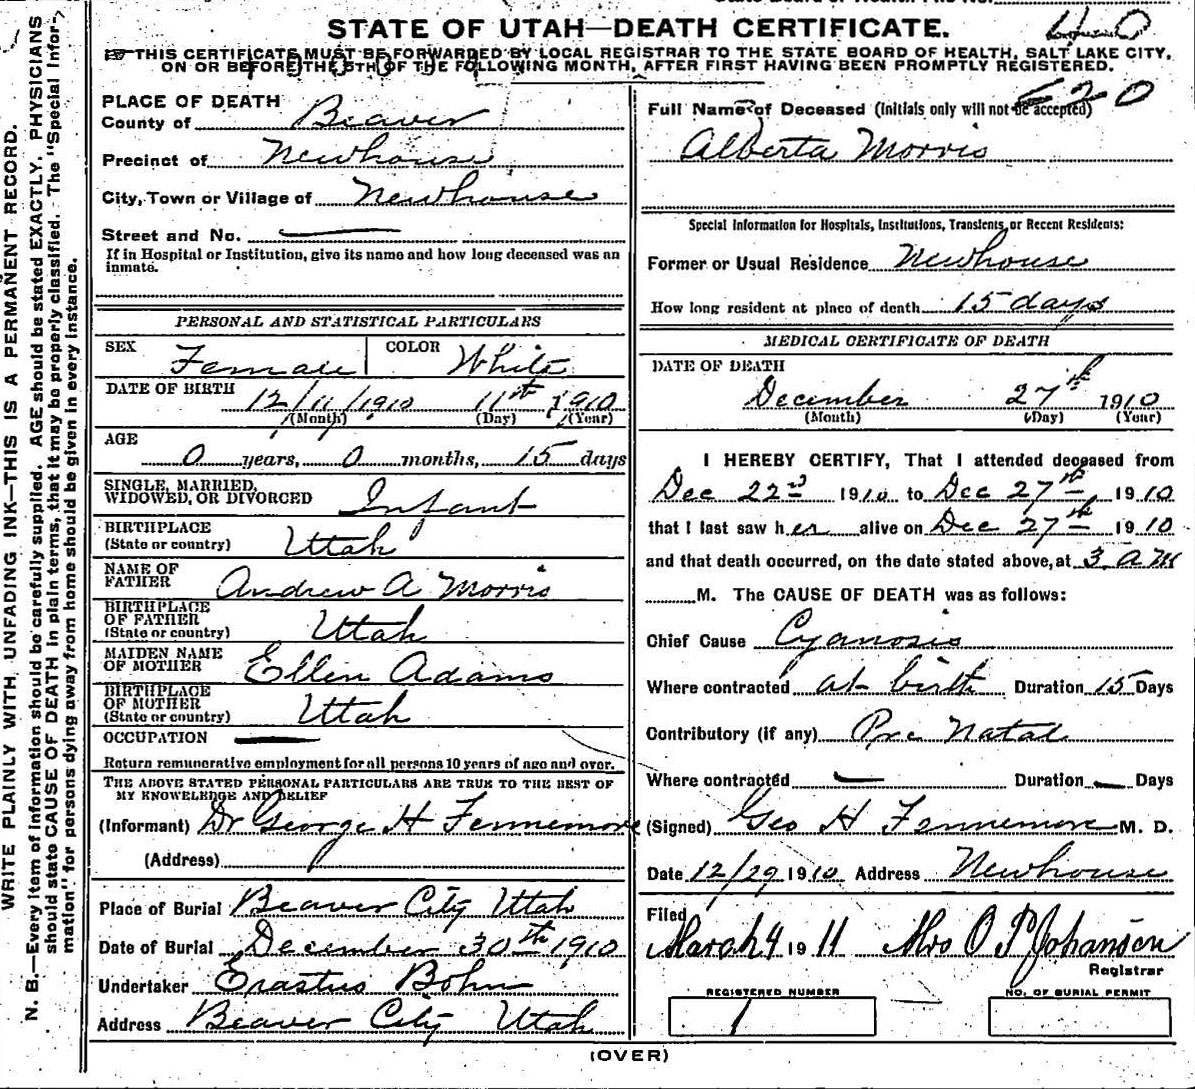 STATE OF UTAH—DEATH CERTIFICATE.
THIS CERTIFICATE MUST BE FORWARDED BY LOCAL REGISTRAR TO THE STATE BOARD OF HEALTH, SALT LAKE CITY,
ON OR BEFORE THE 5TH OF THE FOLLOWING MONTH, AFTER FIRST HAVING BEEN PROMPTLY REGISTERED.
WRITE PLAINLY WITH UNFADING INK—THIS IS A PERMANENT RECORD.
N. B.—Every item of information should be carefully supplied. AGE should be stated EXACTLY. PHYSICIANS
should state CAUSE OF DEATH in plain terms, that it may be properly classified. The "Special Infor-
mation" for persons dying away from home should be given in every instance.
PLACE OF DEATH
County of Beaver
Precinct of Newhouse
City, Town or Village of Newhouse
Street and No.
If in Hospital or Institution, give its name and how long deceased was an
inmate.
PERSONAL AND STATISTICAL PARTICULARS
SEX Female COLOR White
DATE OF BIRTH 12/11/1910 11th 1910
(Month) (Day) (Year)
AGE
0 years, 0 months, 15 days
SINGLE, MARRIED,
WIDOWED, OR DIVORCED Infant
BIRTHPLACE
(State or country) Utah
NAME OF
FATHER Andrew A Morris
BIRTHPLACE
OF FATHER
(State or country) Utah
MAIDEN NAME
OF MOTHER Ellen Adams
BIRTHPLACE
OF MOTHER
(State or country) Utah
OCCUPATION
Return remunerative employment for all persons 10 years of age and over.
THE ABOVE STATED PERSONAL PARTICULARS ARE TRUE TO THE BEST OF
MY KNOWELEDGE AND BELIEF
(Informant) Dr George H Fennemore
(Address)
Place of Burial Beaver City Utah
Date of Burial December 30th 1910
Undertaker Erastus Bohn
Address Beaver City Utah
620
Full Name of Deceased (Initials only will not be accepted)
Alberta Morris
Special Information for Hospitals, Institutions, Transients, or Recent Residents:
Former or Usual Residence Newhouse
How long resident at place of death 15 days
MEDICAL CERTIFICATE OF DEATH
DATE OF DEATH
December 27th 1910
(Month) (Day) (Year)
I HEREBY CERTIFY, That I attended deceased from
Dec 22nd 1910 to Dec 27th, 1910
that I last saw her alive on Dec 27th, 1910
and that death occurred, on the date stated above, at 3 AM
M. The CAUSE OF DEATH was as follows:
Chief Cause Cyanosis
Where contracted at birth Duration 15 Days
Contributory (if any) Pre Natal
Where contracted — Duration — Days
(Signed) Geo H Fennemore M. D.
Date 12/29 1910 Address Newhouse
Filed
March 4 1911 Mrs O P Johansen
Registrar
REGISTERED NUMBER
1
NO. OF BURIAL PERMIT
(OVER)